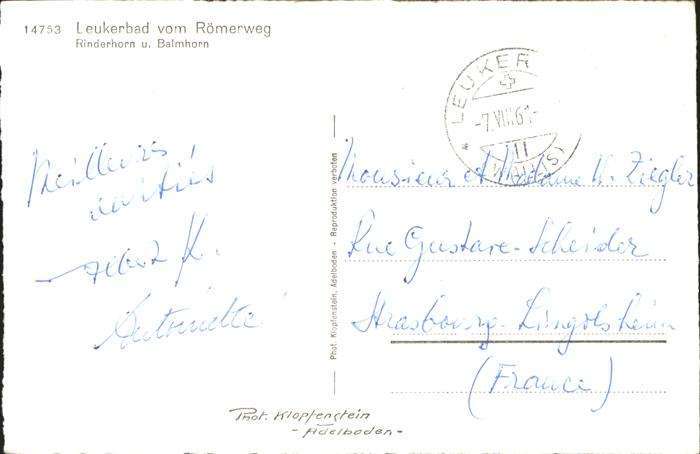 14753 Leukerbad vom Römerweg
Rinderhorn u. Balmhorn
LEUKER
-7.VIII.6
11
(VS)
Meilleures
amitiés
Albert K.
Antoinette
Phot. Klopfenstein, Adelboden - Reproduktion verboten
Monsieur et Madame Ziegler
Rue Gustave-Scheider
Strasbourg-Lingolsheim
(France)
Phot. Klopfenstein
- Adelboden -